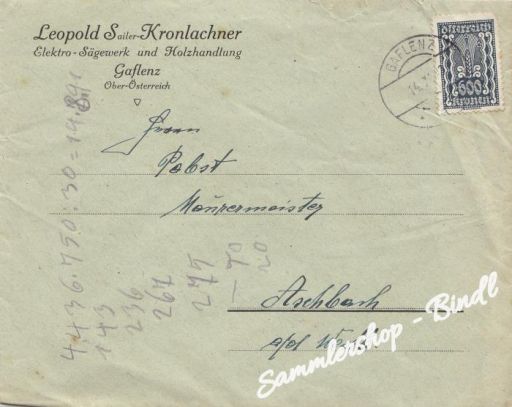 Leopold Sailer-Kronlachner
Elektro-Sägewerk und Holzhandlung
Gaflenz
Ober-Österreich
österreich
600
kronen
GAFLENZ
Herrn
Pabst
Maurermeister
Aschbach
a/d Westb
4,436.750:30=14.891
143
236
267
275
- 70
20
Sammlershop - Bindl